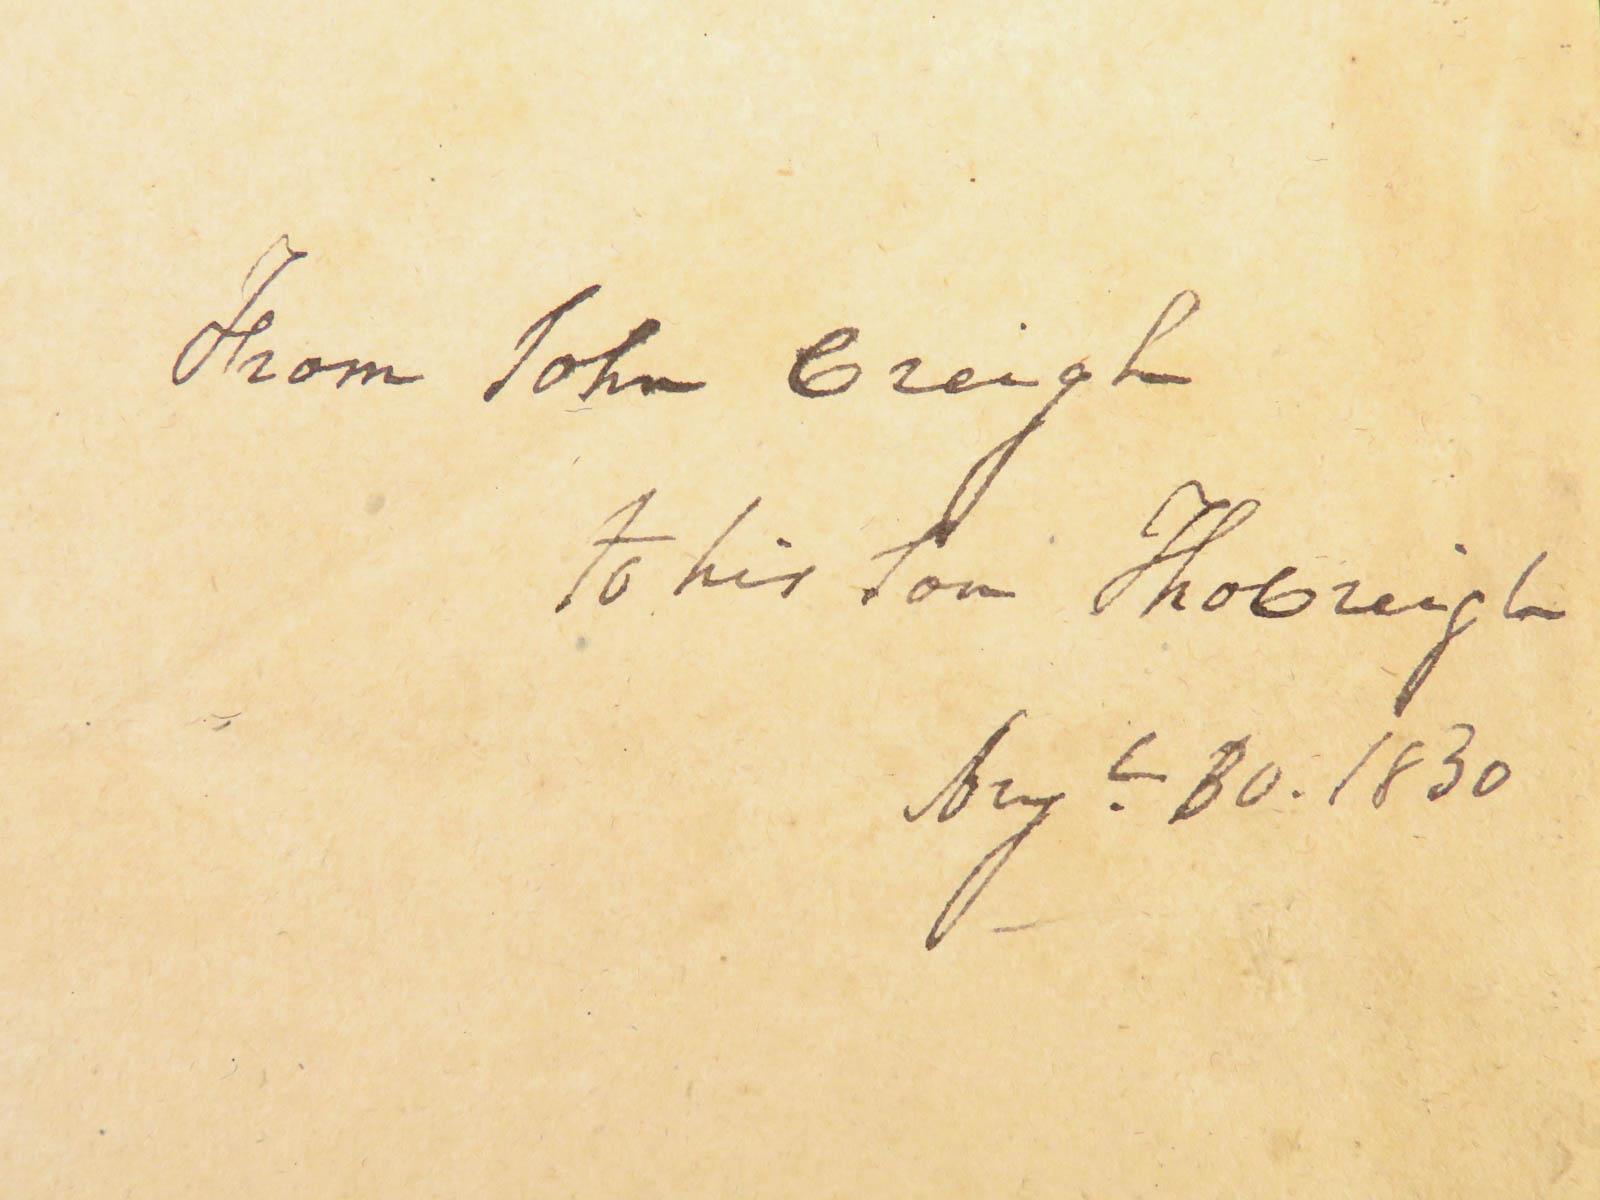 From John Creigh
to his Son Tho Creigh
Augt 30. 1830